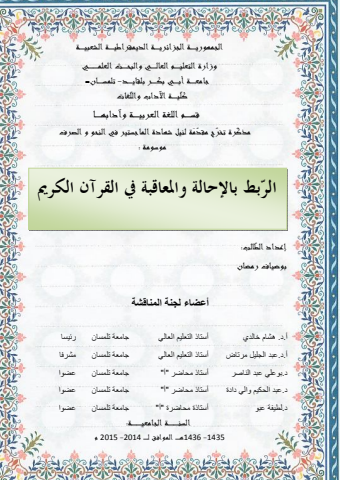 الجمهورية الجزائرية الديمقراطية الشعبية
وزارة التعليم العالي والبحث العلمي
جامعة أبي بكر بلقايد- تلمسان-
كلية الآداب واللغات
قسم اللغة العربية وآدابها
مذكرة تخرّج مقدّمة لنيل شهادة الماجستير في النحو و الصرف
موسومة :
الرّبط بالإحالة والمعاقبة في القرآن الكريم
إعداد الطالب:
بوضياف رمضان
أعضاء لجنة المناقشة
أ.د. هشام خالدي أستاذ التعليم العالي جامعة تلمسان رئيسا
أ.د.عبد الجليل مرتاض أستاذ التعليم العالي جامعة تلمسان مشرفا
د.بوعلي عبد الناصر أستاذ محاضر "أ" جامعة تلمسان عضوا
د.عبد الحكيم والي دادة أستاذ محاضر "أ" جامعة تلمسان عضوا
د.لطيفة عبو أستاذة محاضرة "أ" جامعة تلمسان عضوا
السنة الجامعية:
1435- 1436هـ الموافق لـ 2014- 2015 م